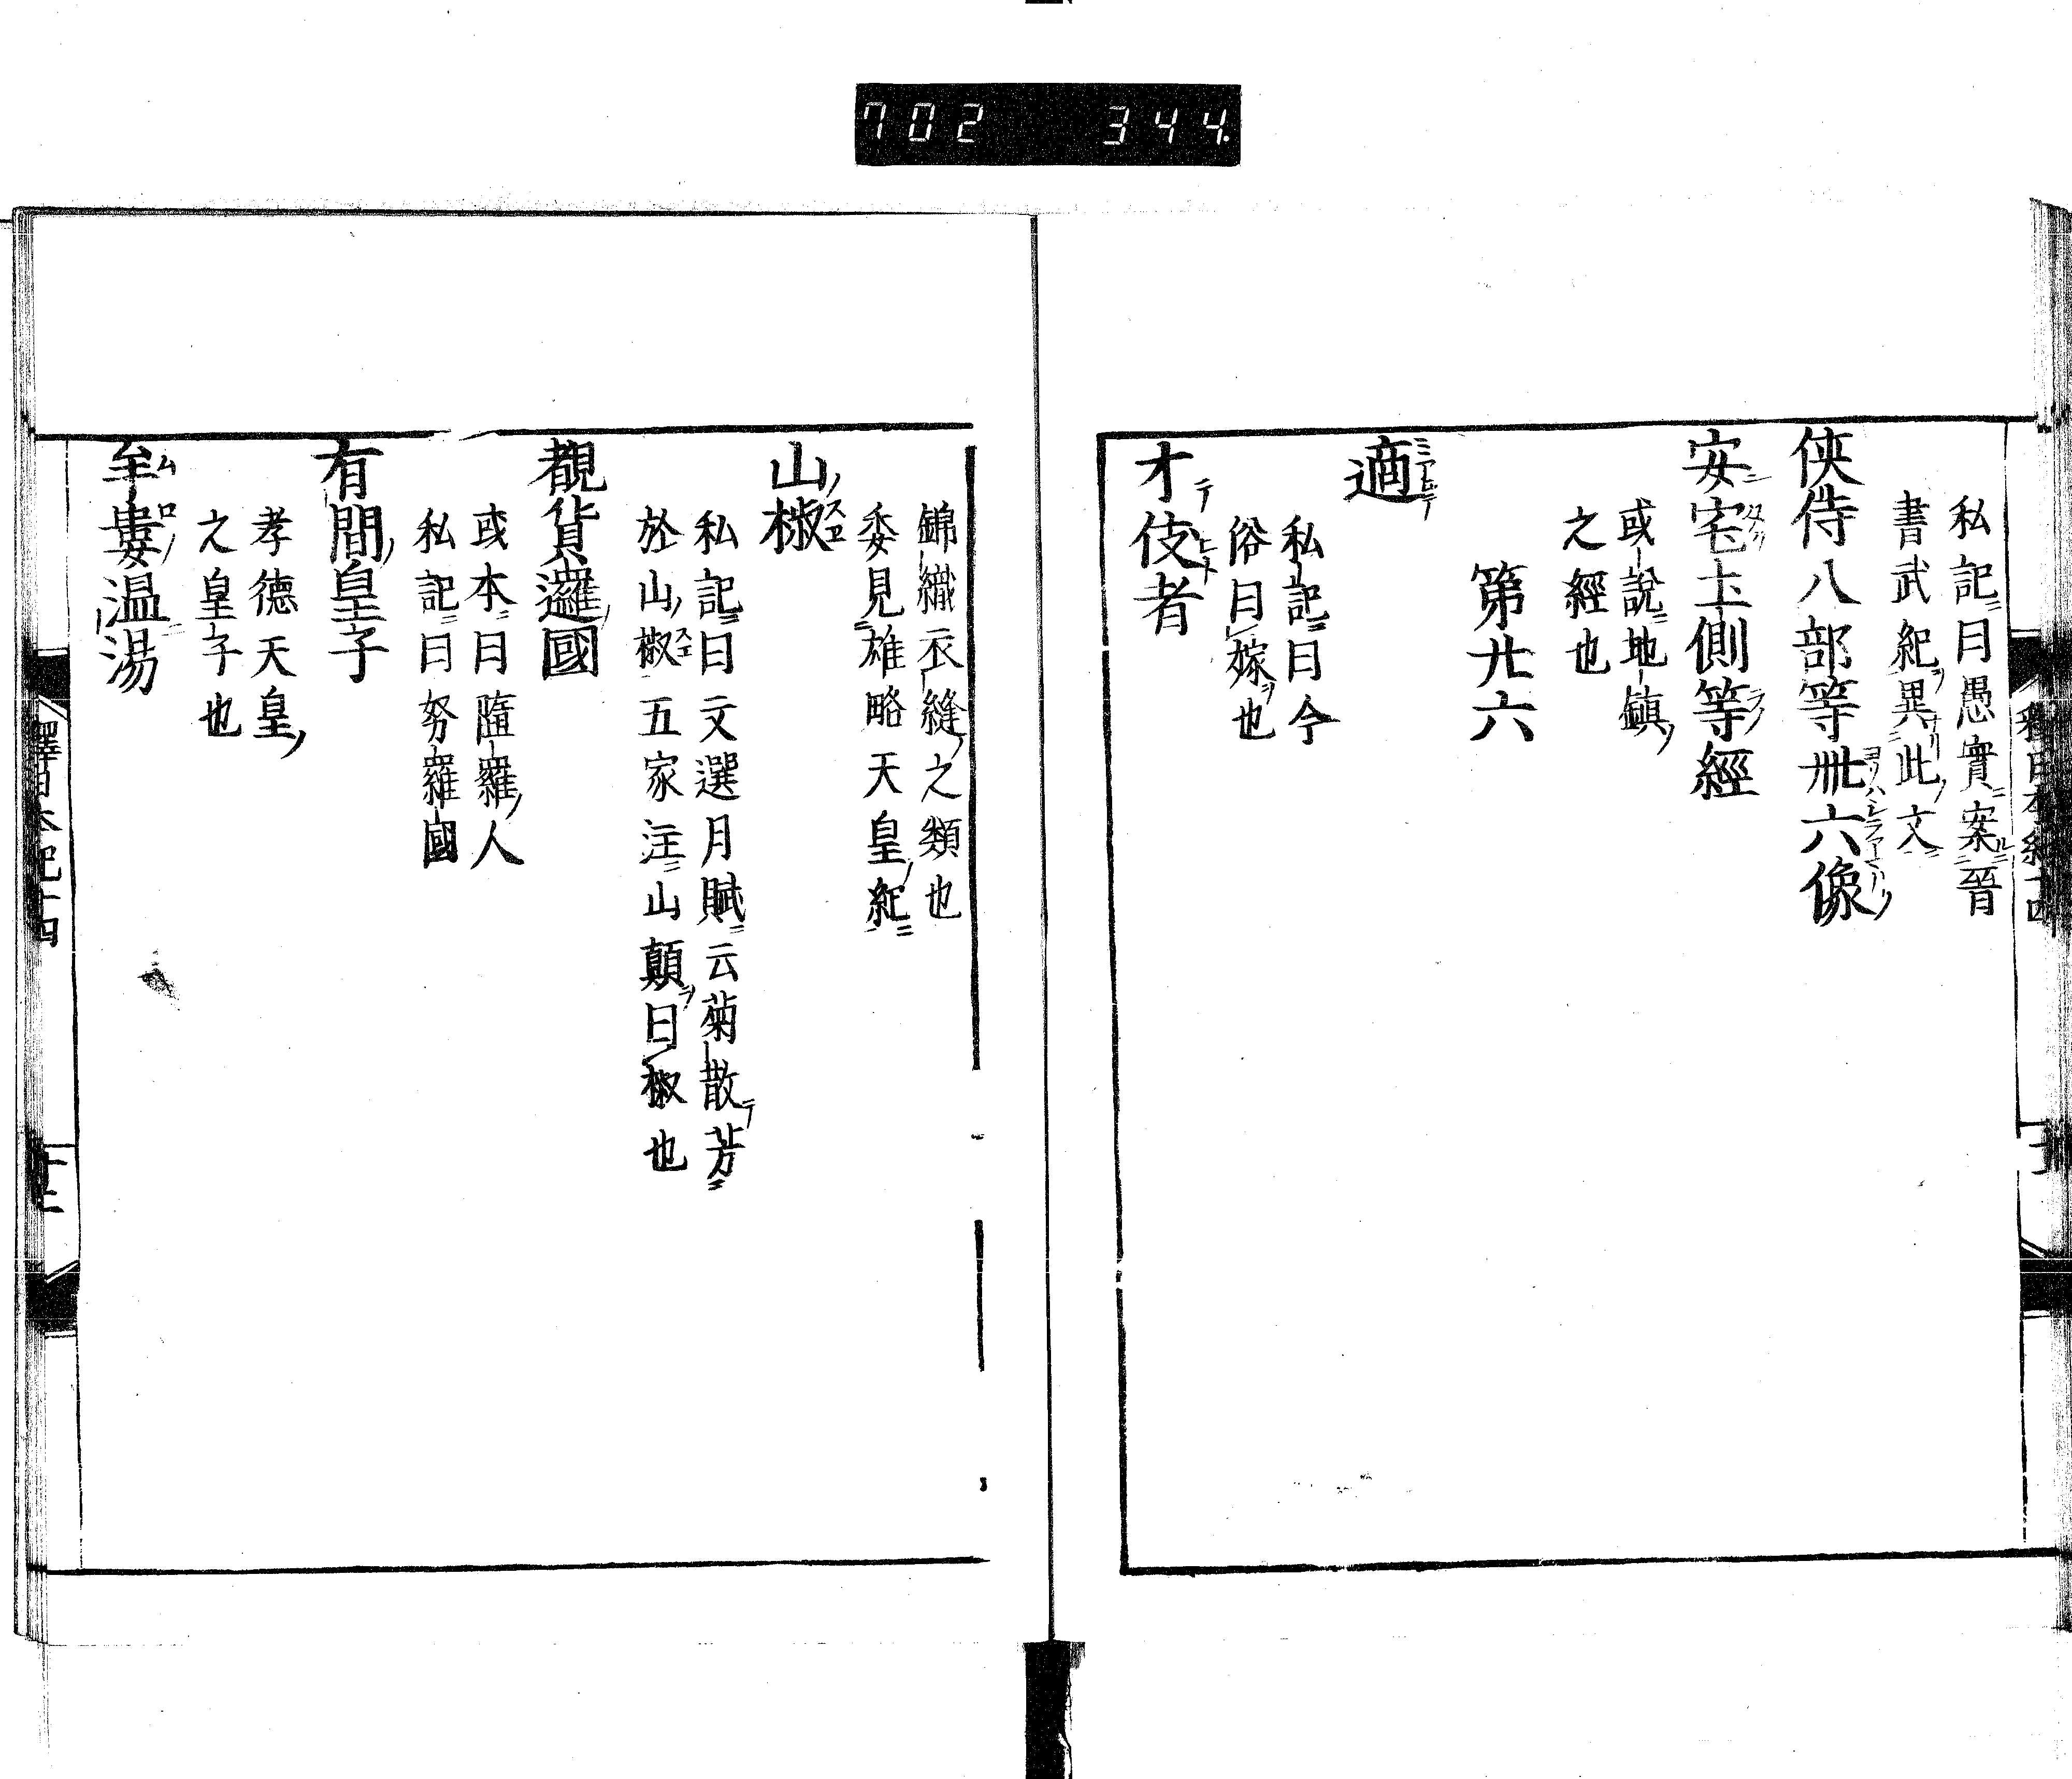 702 344
私記曰愚實案晉
書武紀異此文
侠侍八部等卅六像
安宅土側等經
或説地鎮
之經也
第廿六
適
私記曰今
俗曰嫁也
才伎者
錦織衣縫之類也
委見雄略天皇紀
山椒
私記曰文選月賦云菊散芳
於山椒五家注山顛曰椒也
覩貨邏國
或本曰隨羅人
私記曰努羅國
有間皇子
孝德天皇
之皇子也
牟婁温湯
釋日本紀十四